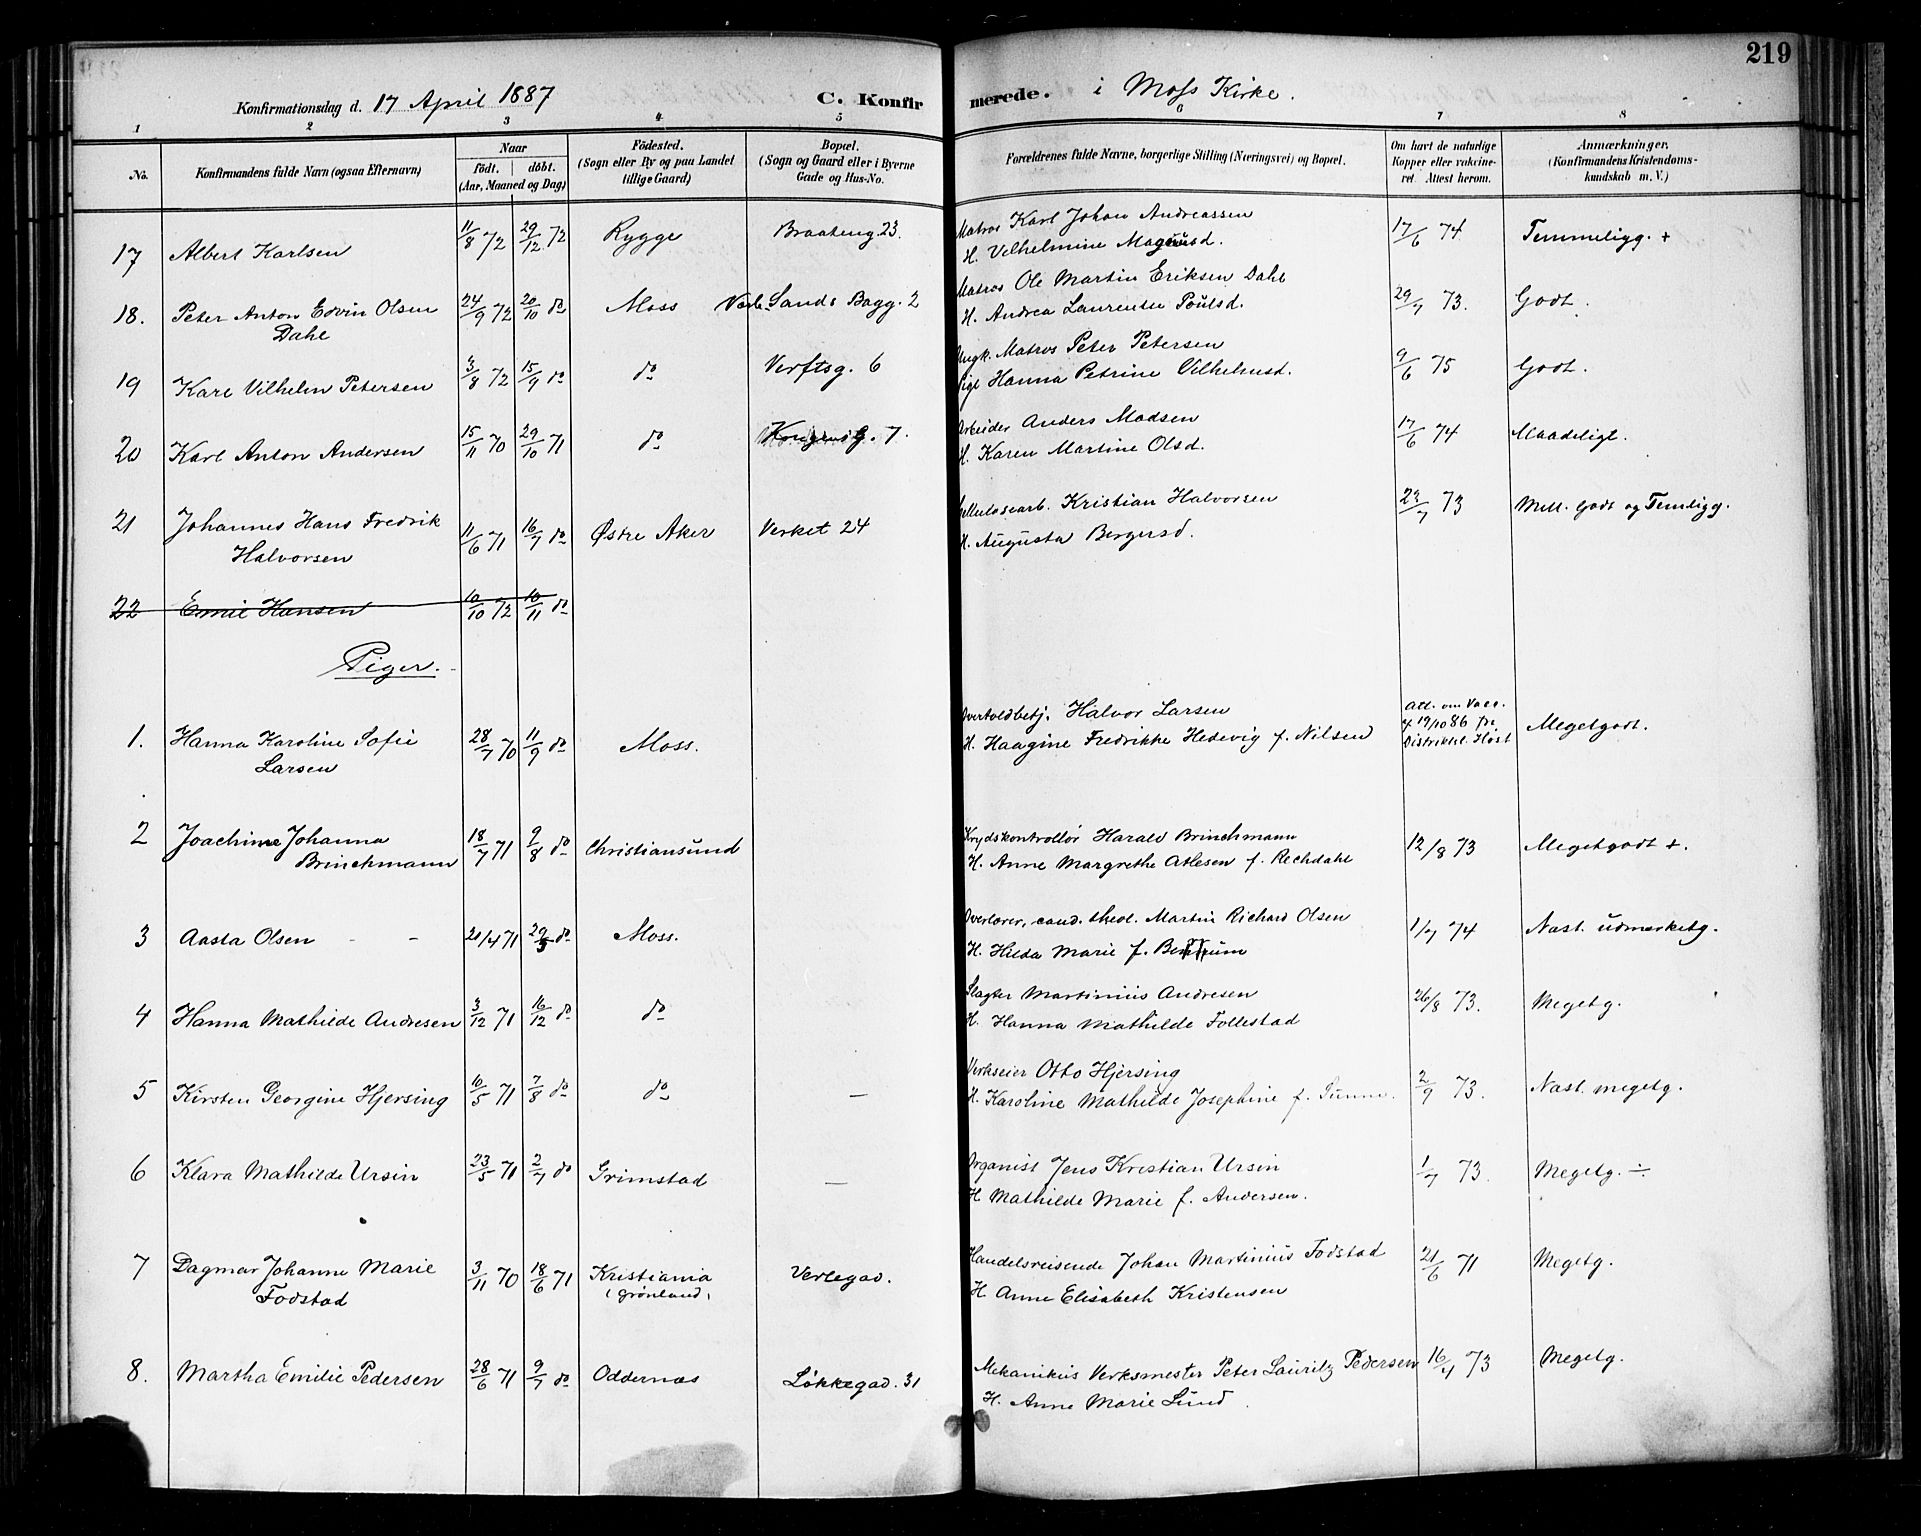 219
Konfirmationsdag d. 17 April 1887 C. Konfirmerede. i Moss Kirke.
1 2 3 4 5 6 7 8
No. Konfirmandens fulde Navn (ogsaa Efternavn) Naar födt. döbt. (Aar, Maaned og Dag) Födested. (Sogn eller By og paa Landet tillige Gaard) Bopæl. (Sogn og Gaard eller i Byerne Gade og Hus-No. Forældrenes fulde Navne, borgerlige Stilling (Næringsvei) og Bopæl. Om havt de naturlige Kopper eller vaccineret. Attest herom. Anmærkninger. (Konfirmandens Kristendomskundskab m. V.)
17 Albert Karlsen 11/8 72 29/12 72 Rygge Braateng. 23. Matros Karl Johan Andreassen 17/6 74 Temmeligg. +
H. Vilhelmine Magnusd.
18. Peter Anton Edvin Olsen Dahl 24/9 72 20/10 do Moss Sands Bagg. 2 Matros Ole Martin Eriksen Dahl 29/7 73. Godt.
H. Andrea Laurentse Poulsd.
19 Karl Vilhelm Petersen 3/8 72 15/9 do do Verftsg. 6 Ungk. Matros Peter Petersen 9/6 75 Godt.
Pige Hanna Petrine Vilhelmsd.
20 Karl Anton Andersen 15/11 70 29/10 71 do 7. Arbeider Anders Madsen 17/6 74 Maadeligt.
H. Karen Martine Olsd.
21 Johannes Hans Fredrik Halvorsen 11/6 71 16/7 do Østre Aker Verket 24 Cellulosearb. Kristian Halvorsen 23/7 73 Mell. Godt og Temligg.
H. Augusta Bergersd.
22 Emil Hansen 10/10 72 10/11 do
Piger.
1. Hanna Karoline Sofie Larsen 28/7 70 11/9 do Moss. Overtoldbetj. Halvor Larsen Att. om Vacc. 19/10 86 fra Distriktsl. Høst Megetgodt.
H. Haagine Fredrikke Hedevig f. Nilsen
2 Joachime Johanna Brinchmann 18/7 71 9/8 do Christiansund Krydskontrollør Harald Brinchmann 12/8 73 Megetgodt +.
H. Anne Margrethe Atlesen f. Rechdahl
3 Aasta Olsen - - 20/4 71 29/5 do Moss. Overlærer, cand. theol. Martin Richard Olsen 1/7 74 Næst. udmærketg.
H. Hilda Marie f.
4 Hanna Mathilde Andresen 3/12 71 16/12 do do Slagter Martinius Andresen 26/8 73. Megetg.
H. Hanna Mathilde Follestad
5 Kirsten Georgine Hjersing 10/5 71 7/8 do do — Verkseier Otto Hjersing 2/9 73. Næst. megetg.
H. Karoline Mathilde Josephine f.
6 Klara Mathilde Ursin 23/5 71 2/7 do Grimstad — Organist Jens Kristian Ursin 1/7 73. Megetg. ÷
H. Mathilde Marie f. Andersen.
7 Dagmar Johanne Marie Fodstad 3/11 70 18/6 71 Kristiania (Grønland) Verlegad. Handelsreisende Johan Martinius Fodstad 21/6 71 Megetg.
H Anne Elisabeth Kristensen
8. Martha Emilie Pedersen 28/6 71 9/7 do Oddernæs Løkkegad. 31 Mekanikus Verksmester Peter Lauritz Pedersen 16/4 73 Megetg.
H. Anne Marie Lund